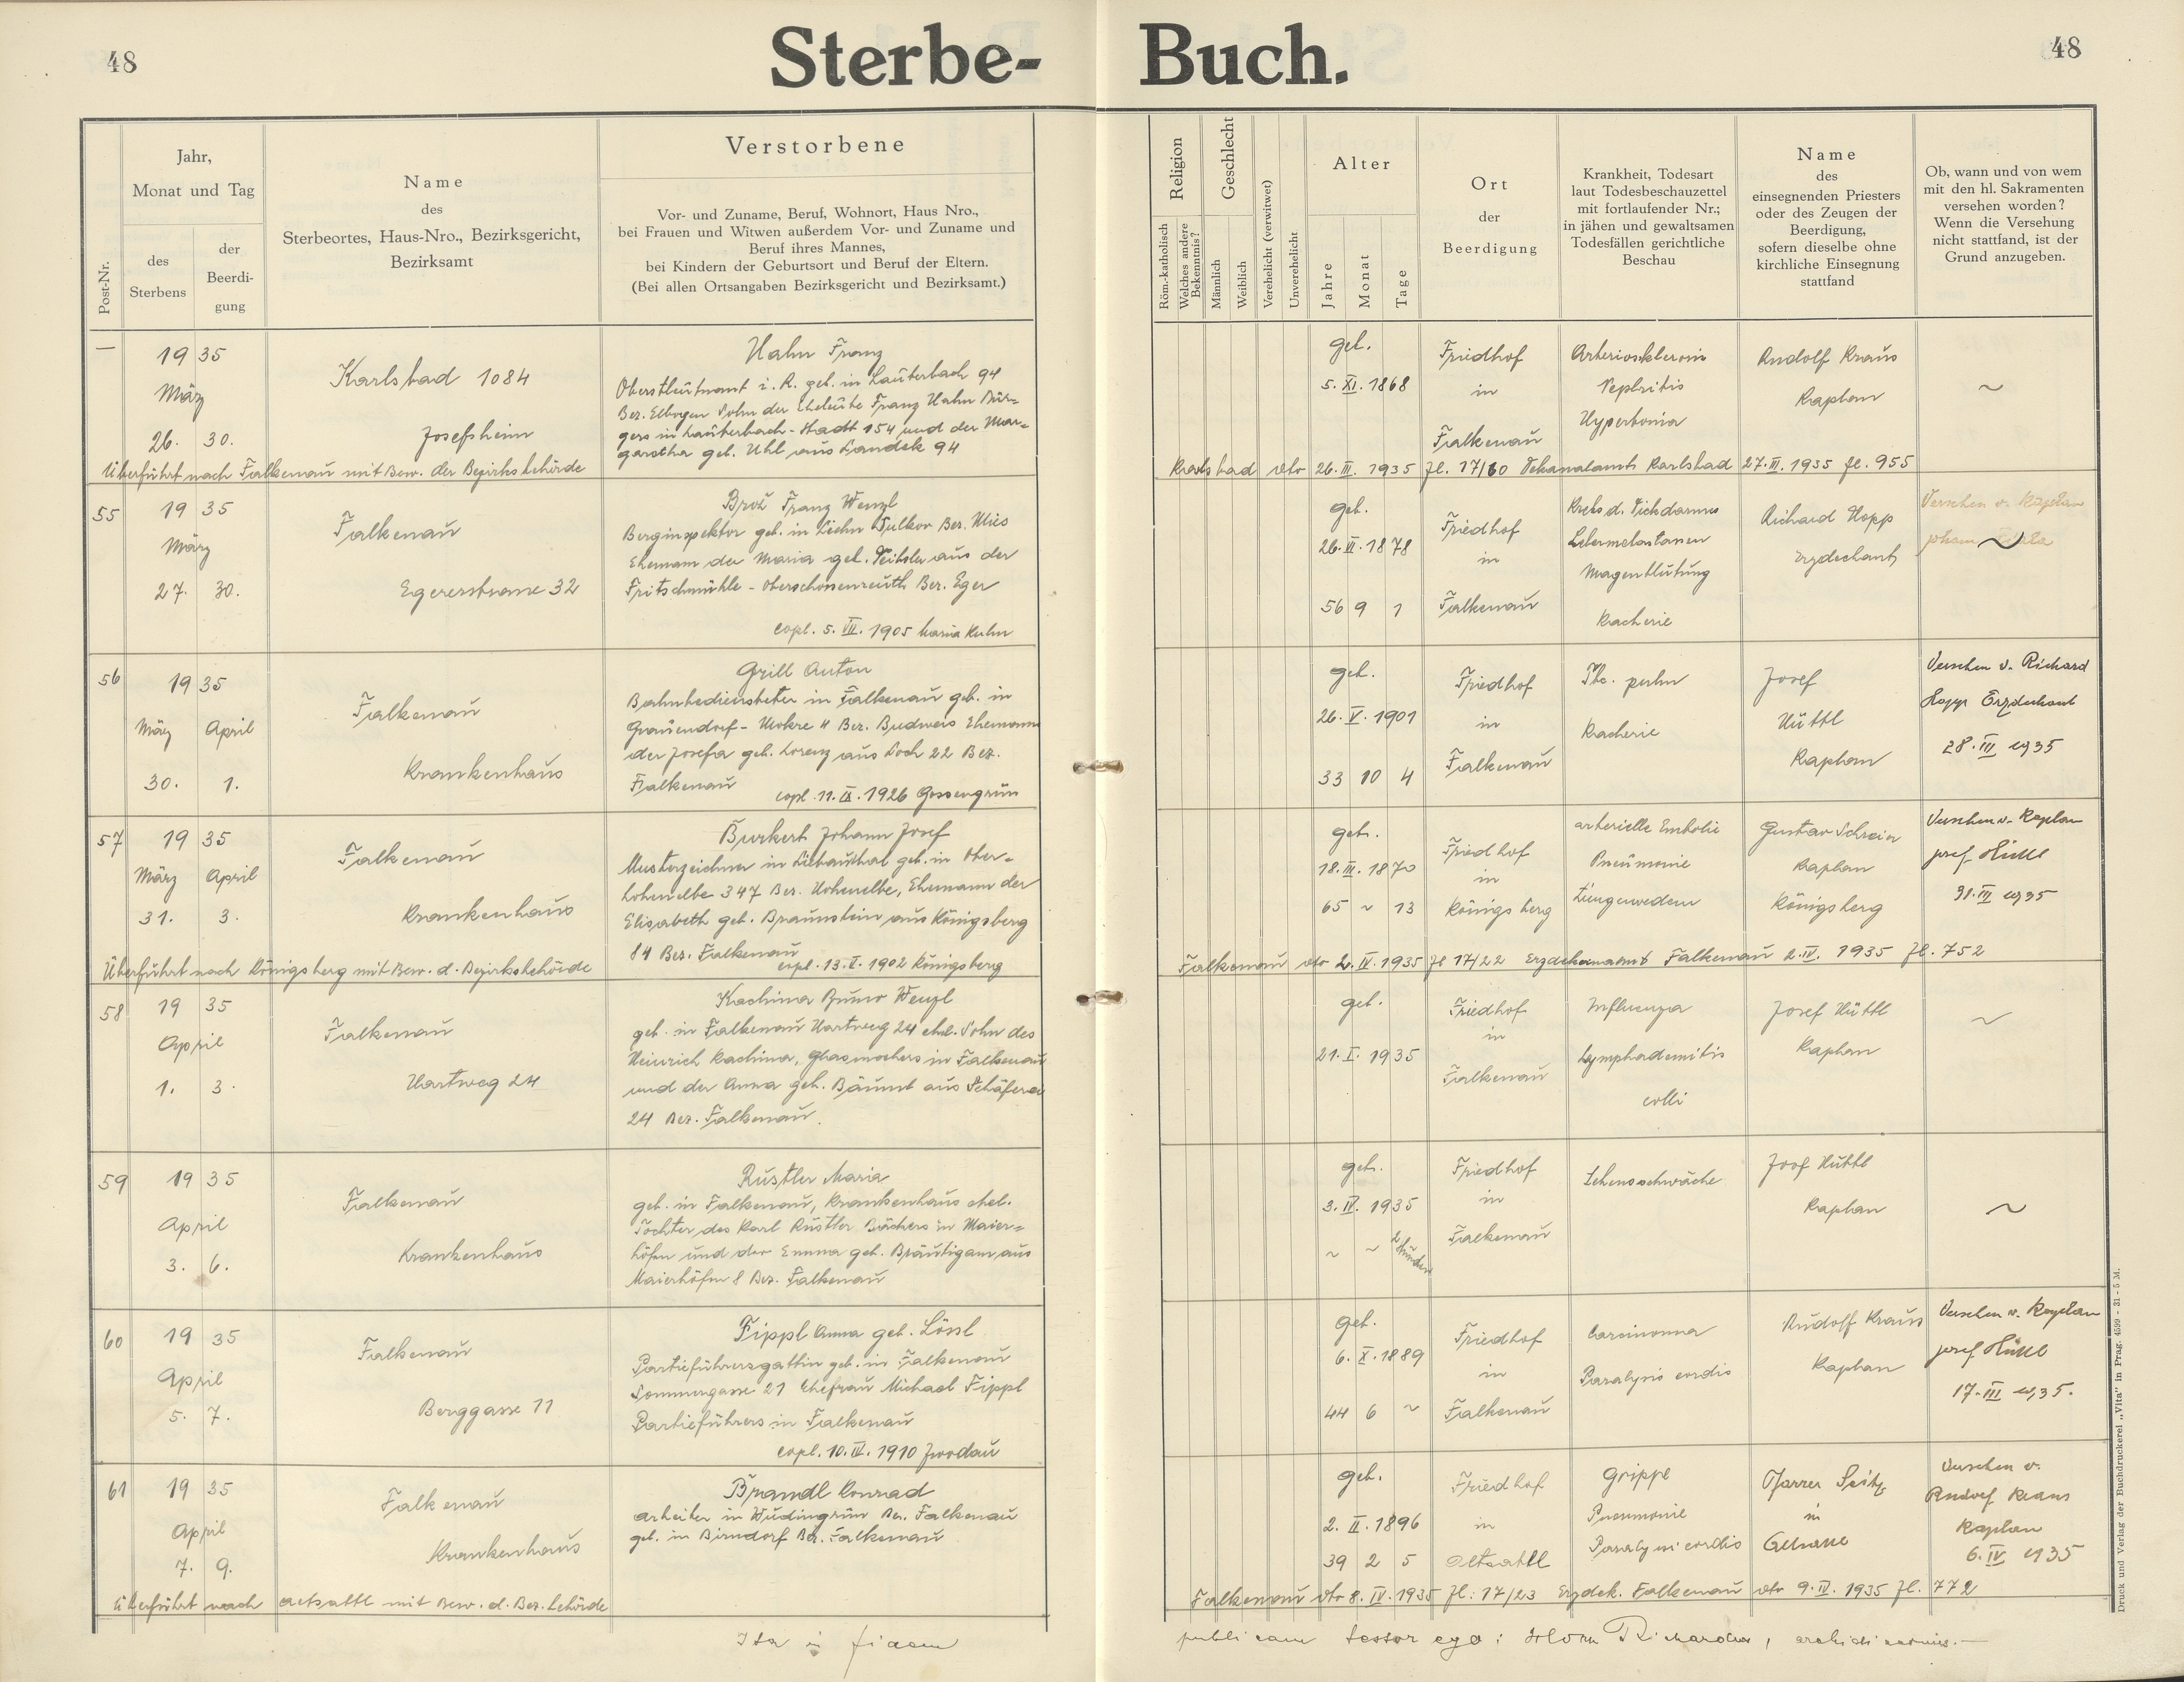 48
Sterbe-
Buch.
48
Post-Nr.
Jahr,
Monat und Tag
des
Sterbens
der
Beerdi-
gung
Name
des
Sterbeortes, Haus-Nro., Bezirksgericht,
Bezirksamt
Verstorbene
Vor- und Zuname, Beruf, Wohnort, Haus Nro.,
bei Frauen und Witwen außerdem Vor- und Zuname und
Beruf ihres Mannes,
bei Kindern der Geburtsort und Beruf der Eltern.
(Bei allen Ortsangaben Bezirksgericht und Bezirksamt.)
Religion
Röm.-katholisch
Welches andere
Bekenntnis?
Geschlecht
Männlich
Weiblich
Verehelicht (verwitwet)
Unverehelicht
Alter
Jahre
Monat
Tage
Ort
der
Beerdigung
Krankheit, Todesart
laut Todesbeschauzettel
mit fortlaufender Nr.;
in jähen und gewaltsamen
Todesfällen gerichtliche
Beschau
Name
des
einsegnenden Priesters
oder des Zeugen der
Beerdigung,
sofern dieselbe ohne
kirchliche Einsegnung
stattfand
Ob, wann und von wem
mit den hl. Sakramenten
versehen worden?
Wenn die Versehung
nicht stattfand, ist der
Grund anzugeben.
—
19 35
März
26. 30.
Karlsbad 1084
Josefsheim
Hahn Franz
Oberstleutnant i. R. geb. in Lauterbach 94
Bez. Elbogen Sohn der Eheleute Franz Hahn Bür-
gers in Lauterbach-Stadt 154 und der Mar-
garetha geb. Uhl aus Landek 94
geb.
5. XI. 1868
Friedhof
in
Falkenau
Arteriosklerosis
Nephritis
Hypertonia
Rudolf Kraus
Kaplan
~
Überführt nach Falkenau mit Bew. der Bezirksbehörde
Karlsbad dto 26. III. 1935 Zl. 17/60 Dekanalamt Karlsbad 27. III. 1935 Zl. 955
55
19 35
März
27. 30.
Falkenau
Egererstrasse 32
Brož Franz Wenzl
Berginspektor geb. in Bez. Mies
Ehemann der Maria geb. aus der
Fritschmühle - Oberschönenreuth Bez. Eger
copl. 5. VII. 1905 Maria Kulm
geb.
26. VI. 1878
56 9 1
Friedhof
in
Falkenau
Krebs d. Dickdarmes
Lebermetastasen
Magenblutung
Kacherie
Richard Hopp
Erzdechant
Versehen v. Kaplan
~
56
19 35
März April
30. 1.
Falkenau
Krankenhaus
Grill Anton
Bahnbediensteter in Falkenau geb. in
Gravendorf - Mokre 11 Bez. Budweis Ehemann
der Josefa geb. Lorenz aus Loch 22 Bez.
Falkenau
copl. 11. IX. 1926 Gossengrün
geb.
26. V. 1901
33 10 4
Friedhof
in
Falkenau
Tbc. pulm
Kacherie
Josef
Hüttl
Kaplan
Versehen v. Richard
Hopp Erzdechant
28. III 1935
57
19 35
März April
31. 3.
Falkenau
Krankenhaus
Burkert Johann Josef
Musterzeichner in Liebauthal geb. in Ober-
hohenelbe 347 Bez. Hohenelbe, Ehemann der
Elisabeth geb. Braunstein aus Königsberg
84 Bez. Falkenau
copl. 13. X. 1902 Königsberg
geb.
18. III. 1870
65 ~ 13
Friedhof
in
Königsberg
arterielle Embolie
Pneumonie
Lungenoedem
Gustav Schreier
Kaplan
Königsberg
Versehen v. Kaplan
Josef Hüttl
31. III 1935
Überführt nach Königsberg mit Bew. d. Bezirksbehörde
Falkenau dto 2. IV. 1935 Zl 17/22 Erzdekanamt Falkenau 2. IV. 1935 Zl. 752
58
19 35
April
1. 3.
Falkenau
Hartweg 24
Kachina Bruno Wenzl
geb. in Falkenau Hartweg 24 ehel. Sohn des
Heinrich Kachina, Glasmachers in Falkenau
und der Anna geb. Bäuml aus Schäferei
24 Bez. Falkenau.
geb.
21. I. 1935
Friedhof
in
Falkenau
Influenza
Lymphadenitis
colli
Josef Hüttl
Kaplan
~
59
19 35
April
3. 6.
Falkenau
Krankenhaus
Rustler Maria
geb. in Falkenau, Krankenhaus ehel.
Tochter des Karl Rustler Bäckers in Maier-
höfen und der Emma geb. Bräutigam aus
Maierhöfen 8 Bez. Falkenau
geb.
3. IV. 1935
~ ~ 2 Stunden
Friedhof
in
Falkenau
Lebensschwäche
Josef Hüttl
Kaplan
~
60
19 35
April
5. 7.
Falkenau
Berggasse 11
Fippl Anna geb. Lössl
Partieführersgattin geb. in Falkenau
Sommergasse 21 Ehefrau Michael Fippl
Partieführers in Falkenau
copl. 10. IV. 1910 Zwodau
geb.
6. X. 1889
44 6 ~
Friedhof
in
Falkenau
Carcinoma
Paralysis cordis
Rudolf Kraus
Kaplan
Versehen v. Kaplan
Josef Hüttl
17. III 1935.
61
19 35
April
7. 9.
Falkenau
Krankenhaus
Brandl Konrad
Arbeiter in Wudingrün Bez. Falkenau
geb. in Birndorf Bez. Falkenau
geb.
2. II. 1896
39 2 5
Friedhof
in
Altsattl
Grippe
Pneumonie
Paralysis cordis
Pfarrer Seitz
in
Versehen v.
Rudolf Kraus
Kaplan
6. IV 1935
Überführt nach Altsattl mit Bew. d. Bez. behörde
Falkenau dto 8. IV. 1935 Zl: 17/23 Erzdek. Falkenau dto 9. IV. 1935 Zl. 772
Ita in fidem
publicam testor ego: Richardus, archidiaconus.—
Druck und Verlag der Buchdruckerei „Vita" in Prag. 4599 - 31 - 5 M.